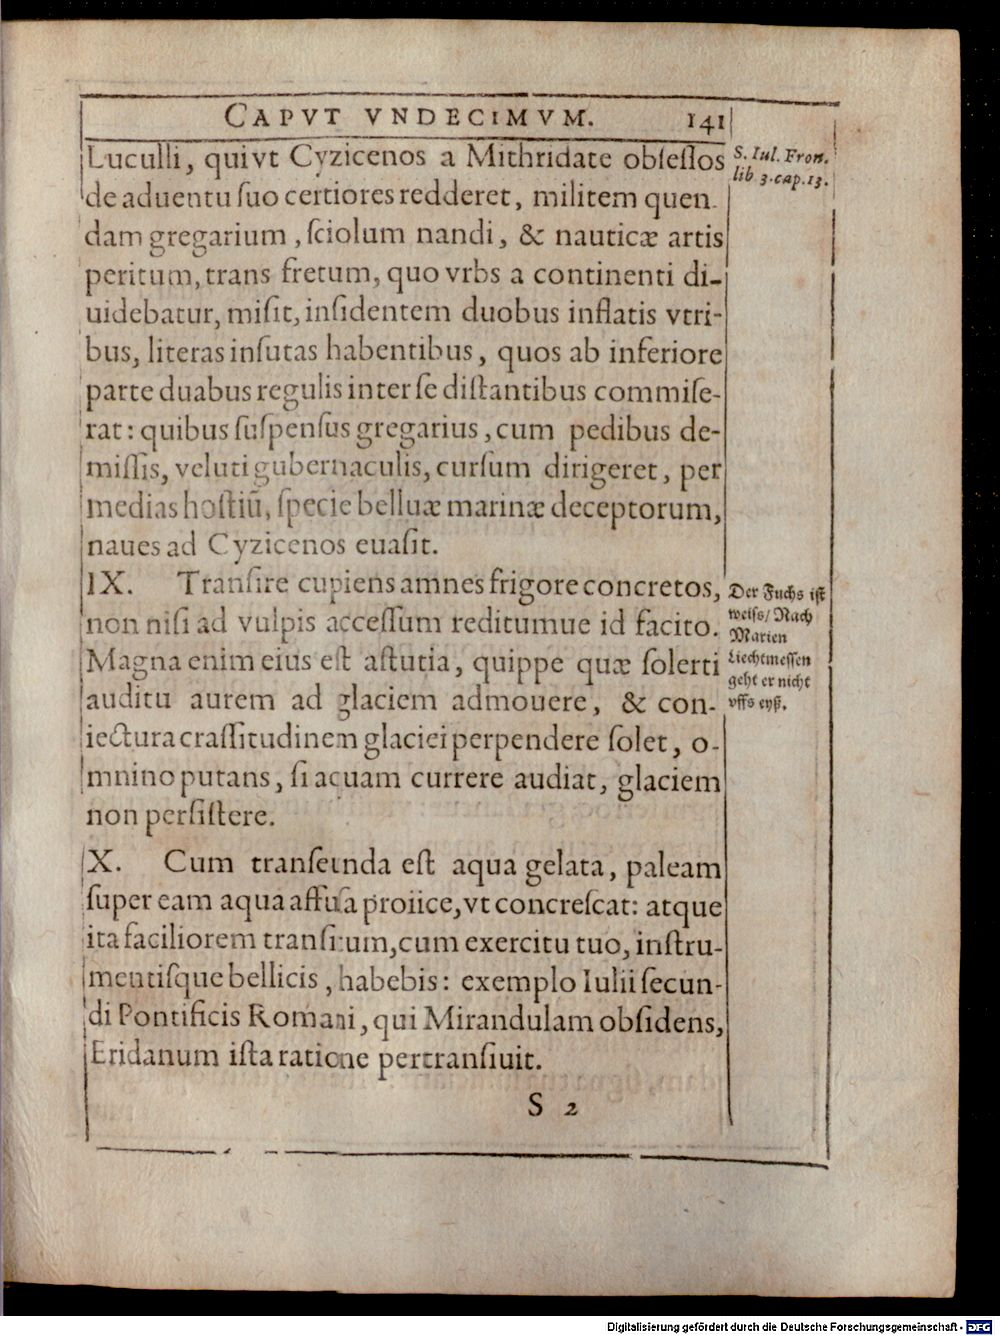 CAPVT VNDECIMVM. 141
Luculli, qui vt Cyzicenos a Mithridate obſeſſos
de aduentu ſuo certiores redderet, militem quen-
dam gregarium, ſciolum nandi, & nauticæ artis
peritum, trans fretum, quo vrbs a continenti di-
uidebatur, miſit, inſidentem duobus inflatis vtri-
bus, literas inſutas habentibus, quos ab inferiore
parte duabus regulis inter ſe diſtantibus commiſe-
rat: quibus ſuſpenſus gregarius, cum pedibus de-
miſſis, veluti gubernaculis, curſum dirigeret, per
medias hoſtiū, ſpecie belluæ marinæ deceptorum,
naues ad Cyzicenos euaſit.
S. Iul. Fron.
lib 3. cap. 13.
IX. Tranſire cupiens amnes frigore concretos,
non niſi ad vulpis acceſſum reditumue id facito.
Magna enim eius eſt aſtutia, quippe quæ ſolerti
auditu aurem ad glaciem admouere, & con-
iectura craſſitudinem glaciei perpendere ſolet, o-
mnino putans, ſi acuam currere audiat, glaciem
non perſiſtere.
Der Fuchs iſt
weiſs/ Nach
Marien
Liechtmeſſen
geht er nicht
vffs eyß.
X. Cum tranſeunda eſt aqua gelata, paleam
ſuper eam aqua affuſa proiice, vt concreſcat: atque
ita faciliorem tranſitum, cum exercitu tuo, inſtru-
mentiſque bellicis, habebis: exemplo Iulii ſecun-
di Pontificis Romani, qui Mirandulam obſidens,
Eridanum iſta ratione pertranſiuit.
S 2
Digitalisierung gefördert durch die Deutsche Forschungsgemeinschaft - DFG